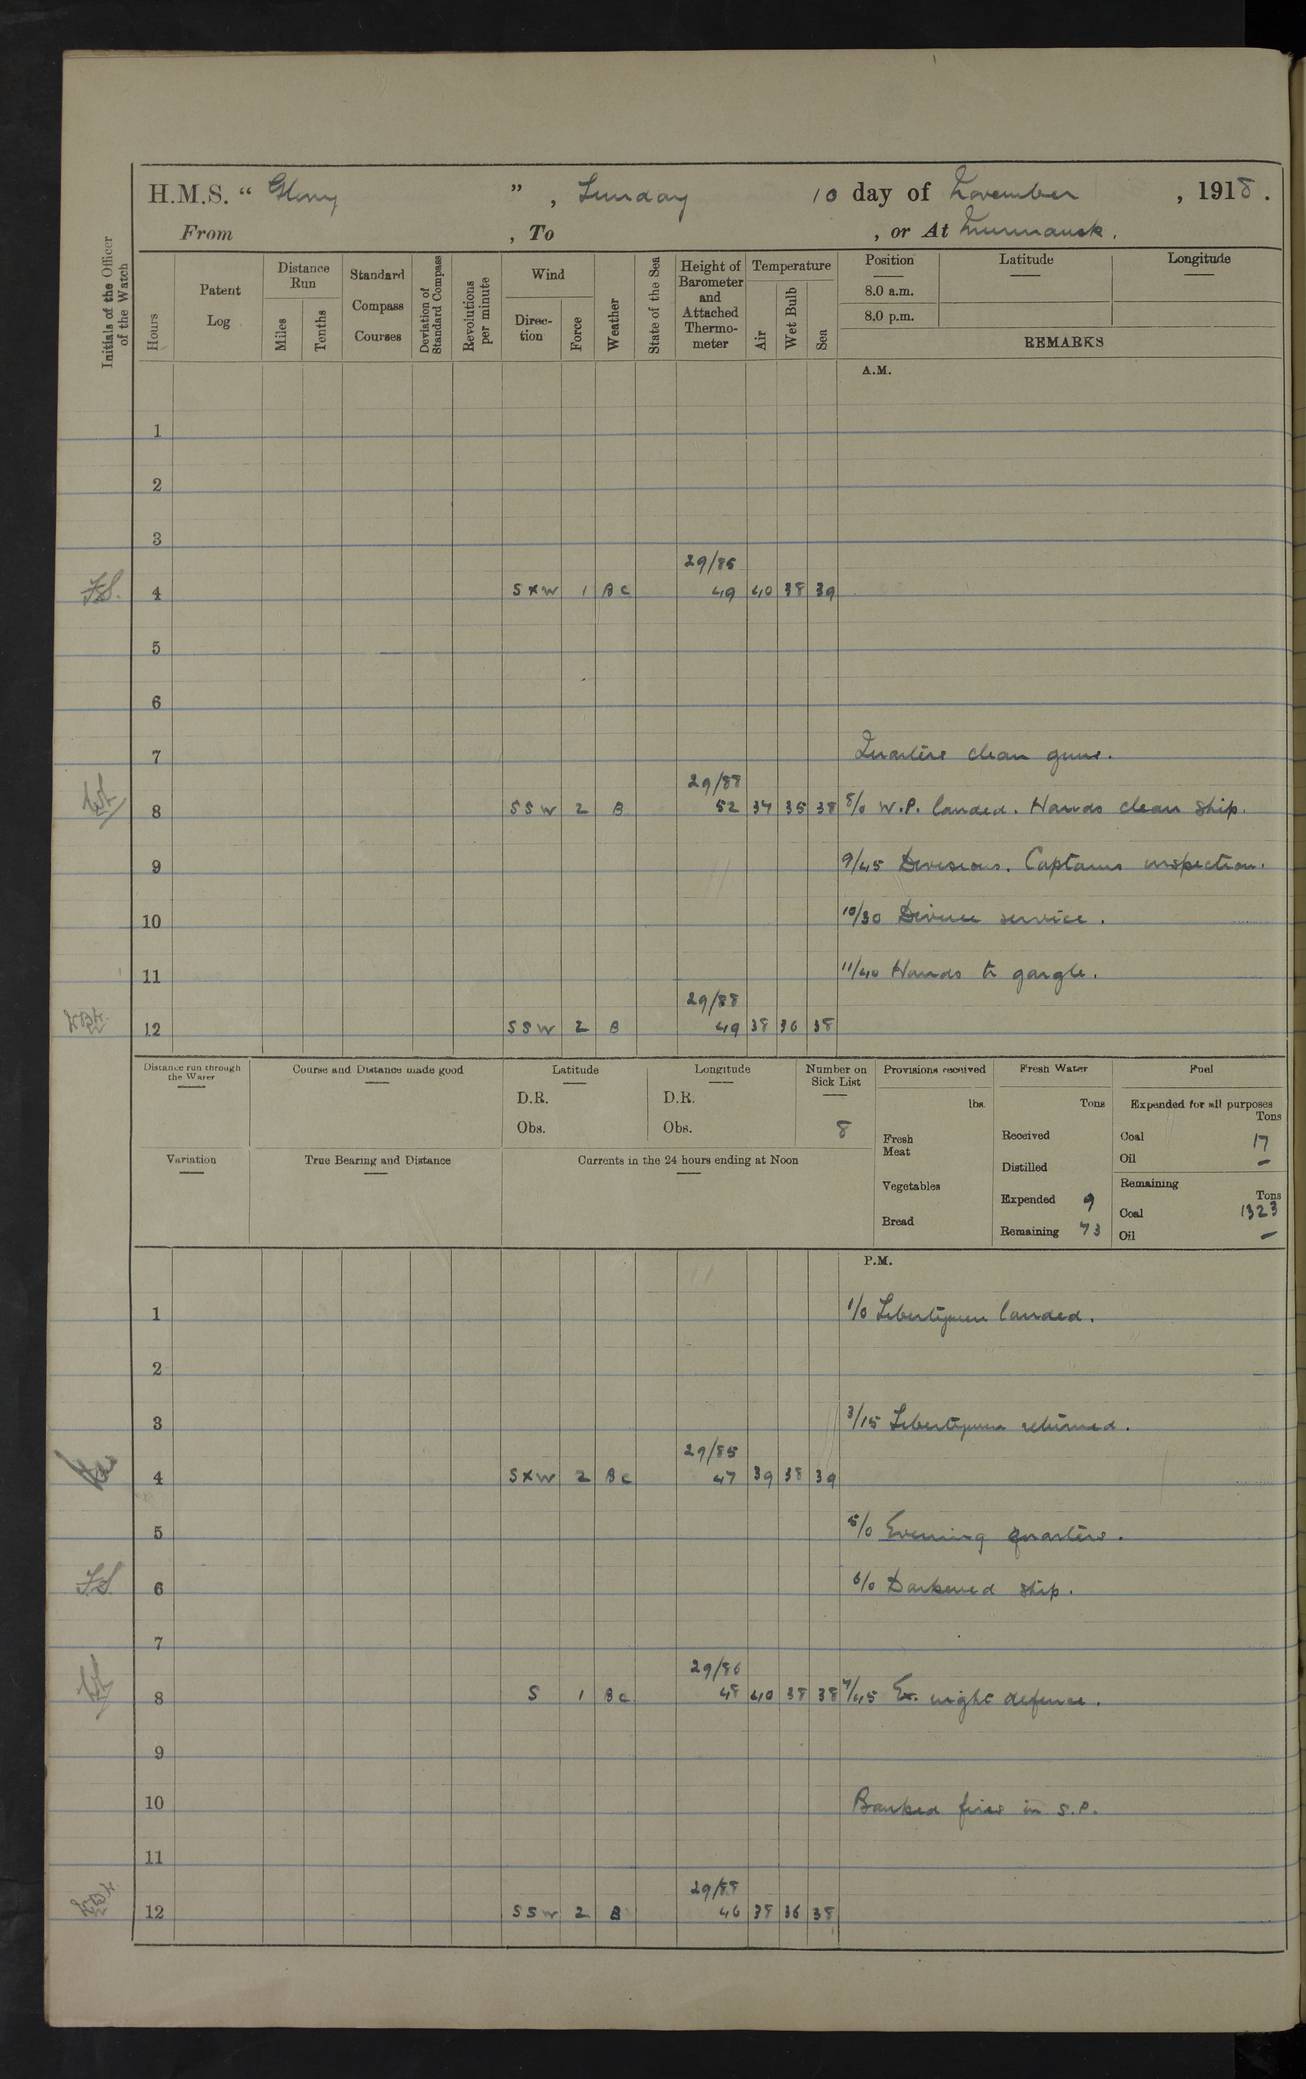 H.M.S. “ Glory ” , Sunday 10 day of November , 1918 .
From , To , or At Murmansk .
Initials of the Officer of the Watch
Hours
Patent Log
Distance Run
Miles
Tenths
Standard Compass Courses
Deviation of Standard Compass
Revolutions per minute
Wind
Direction
Force
Weather
State of the Sea
Height of Barometer and Attached Thermometer
Temperature
Air
Wet Bulb
Sea
Position
8.0 a.m.
8.0 p.m.
Latitude
Longitude
REMARKS
A.M.
1
2
3
29/85
F.S. 4 S x W 1 B C 49 40 38 39
5
6
7 Quarters clean guns.
29/88
8 S S W 2 B 52 37 35 38 8/0 W.P. landed. Hands clean ship.
9 9/45 Divisions. Captains inspection.
10 10/30 Divine service .
11 11/40 Hands to gargle .
29/88
12 S S W 2 B 49 38 36 38
Distance run through the Water
Course and Distance made good
Latitude
D.R.
Obs.
Longitude
D.R.
Obs.
Number on Sick List
8
Provisions received
lbs.
Fresh Meat
Vegetables
Bread
Fresh Water
Tons
Received
Distilled
Expended 9
Remaining 73
Fuel
Expended for all purposes
Tons
Coal 17
Oil –
Remaining
Tons
Coal 1323
Oil –
Variation
True Bearing and Distance
Currents in the 24 hours ending at Noon
P.M.
1 1/0 Libertymen landed .
2
3 3/15 Libertymen returned .
29/85
4 S x W 2 B C 47 39 38 39
5 5/0 Evening quarters .
F.S. 6 6/0 Darkened ship .
7
29/86
8 S 1 B C 48 40 38 38 7/45 Ex. night defence .
9
10 Banked fires in S.P.
11
29/88
12 S S W 2 B 46 38 36 38